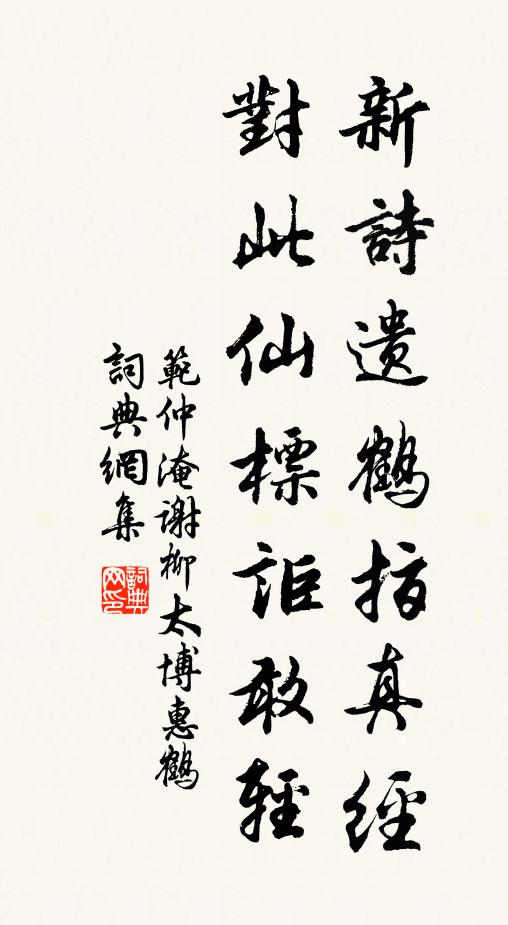 新詩遺鶴指真經
對此仙標詎敢輕
範仲淹謝柳太博惠鶴
詞典網集
詞典
网印